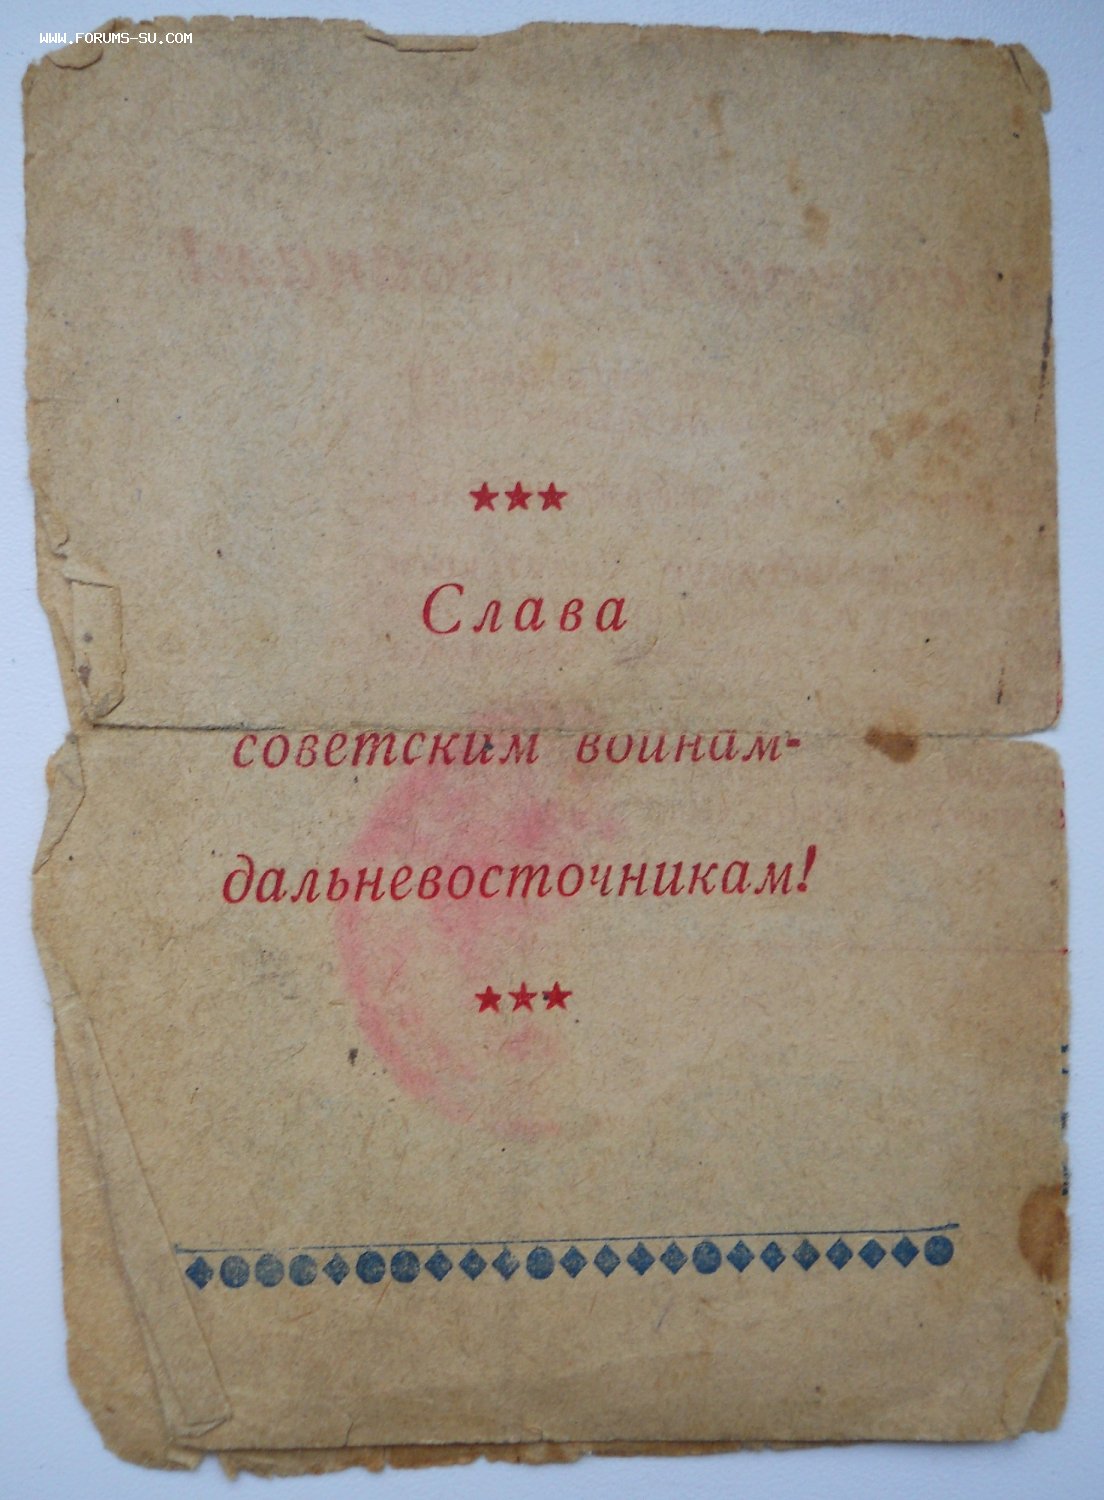 WWW.FORUMS-SU.COM
★★★
Слава
советским воинам-
дальневосточникам!
★★★